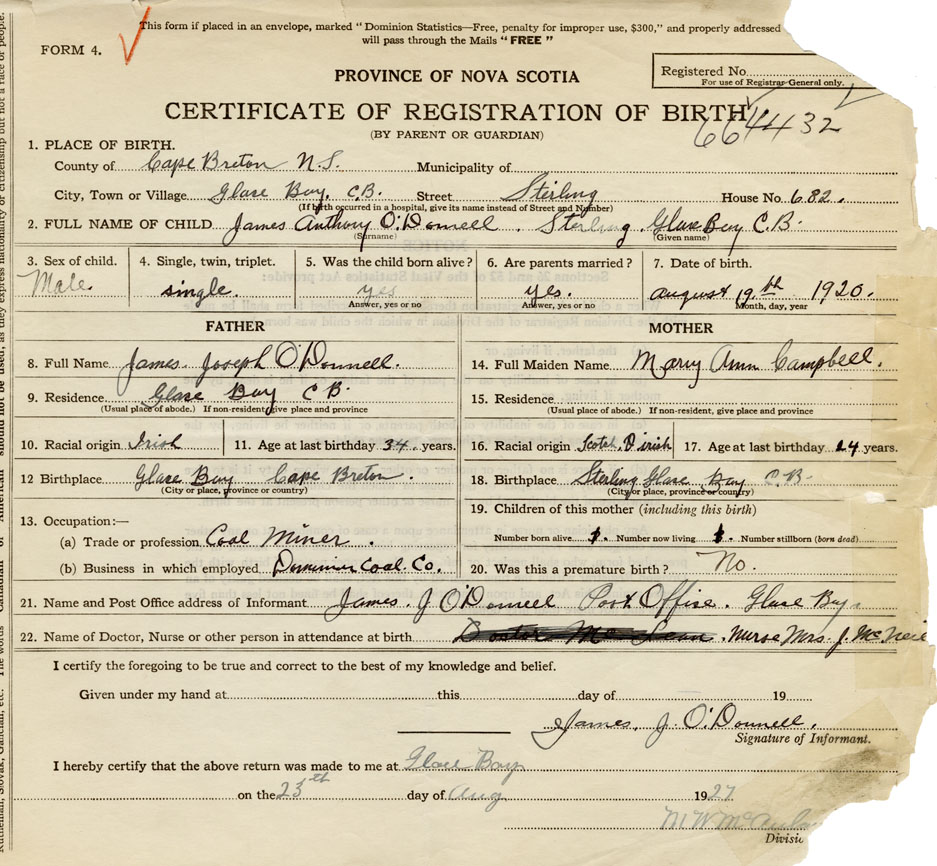 This form if placed in an envelope, marked "Dominion Statistics—Free, penalty for improper use, $300," and properly addressed
will pass through the Mails "FREE"
FORM 4.
Registered No.
For use of Registrar-General only.
PROVINCE OF NOVA SCOTIA
CERTIFICATE OF REGISTRATION OF BIRTH
(BY PARENT OR GUARDIAN)
664432
1. PLACE OF BIRTH.
County of Cape Breton N.S. Municipality of
City, Town or Village Glase Bay, C.B. Street Sterling House No. 682.
(If birth occurred in a hospital, give its name instead of Street and Number)
2. FULL NAME OF CHILD James Anthony O'Donnell . Sterling . Glase Bay C.B.
(Surname) (Given name)
3. Sex of child. 4. Single, twin, triplet. 5. Was the child born alive? 6. Are parents married? 7. Date of birth.
Male single. yes yes. august 19th 1920.
Answer, yes or no Answer, yes or no Month, day, year
FATHER MOTHER
8. Full Name James Joseph O'Donnell. 14. Full Maiden Name Mary Ann Campbell.
9. Residence Glase Bay C B. 15. Residence
(Usual place of abode.) If non-resident, give place and province (Usual place of abode.) If non-resident, give place and province
10. Racial origin Irish 11. Age at last birthday 34 years. 16. Racial origin Scotch, irish 17. Age at last birthday 24 years.
12 Birthplace Glase Bay Cape Breton. 18. Birthplace Sterling Glase Bay C.B.
(City or place, province or country) (City or place, province or country)
19. Children of this mother (including this birth)
13. Occupation:—
(a) Trade or profession Coal Miner . Number born alive Number now living Number stillborn (born dead)
(b) Business in which employed Dominion Coal Co. 20. Was this a premature birth? No.
21. Name and Post Office address of Informant James. J O'Donnell Post Office. Glase Bay,
22. Name of Doctor, Nurse or other person in attendance at birth Nurse Mrs. J. McNeil
I certify the foregoing to be true and correct to the best of my knowledge and belief.
Given under my hand at this day of 19
James, J. O'Donnell.
Signature of Informant.
I hereby certify that the above return was made to me at Glace Bay
on the 23th day of Aug 1927
Divisio